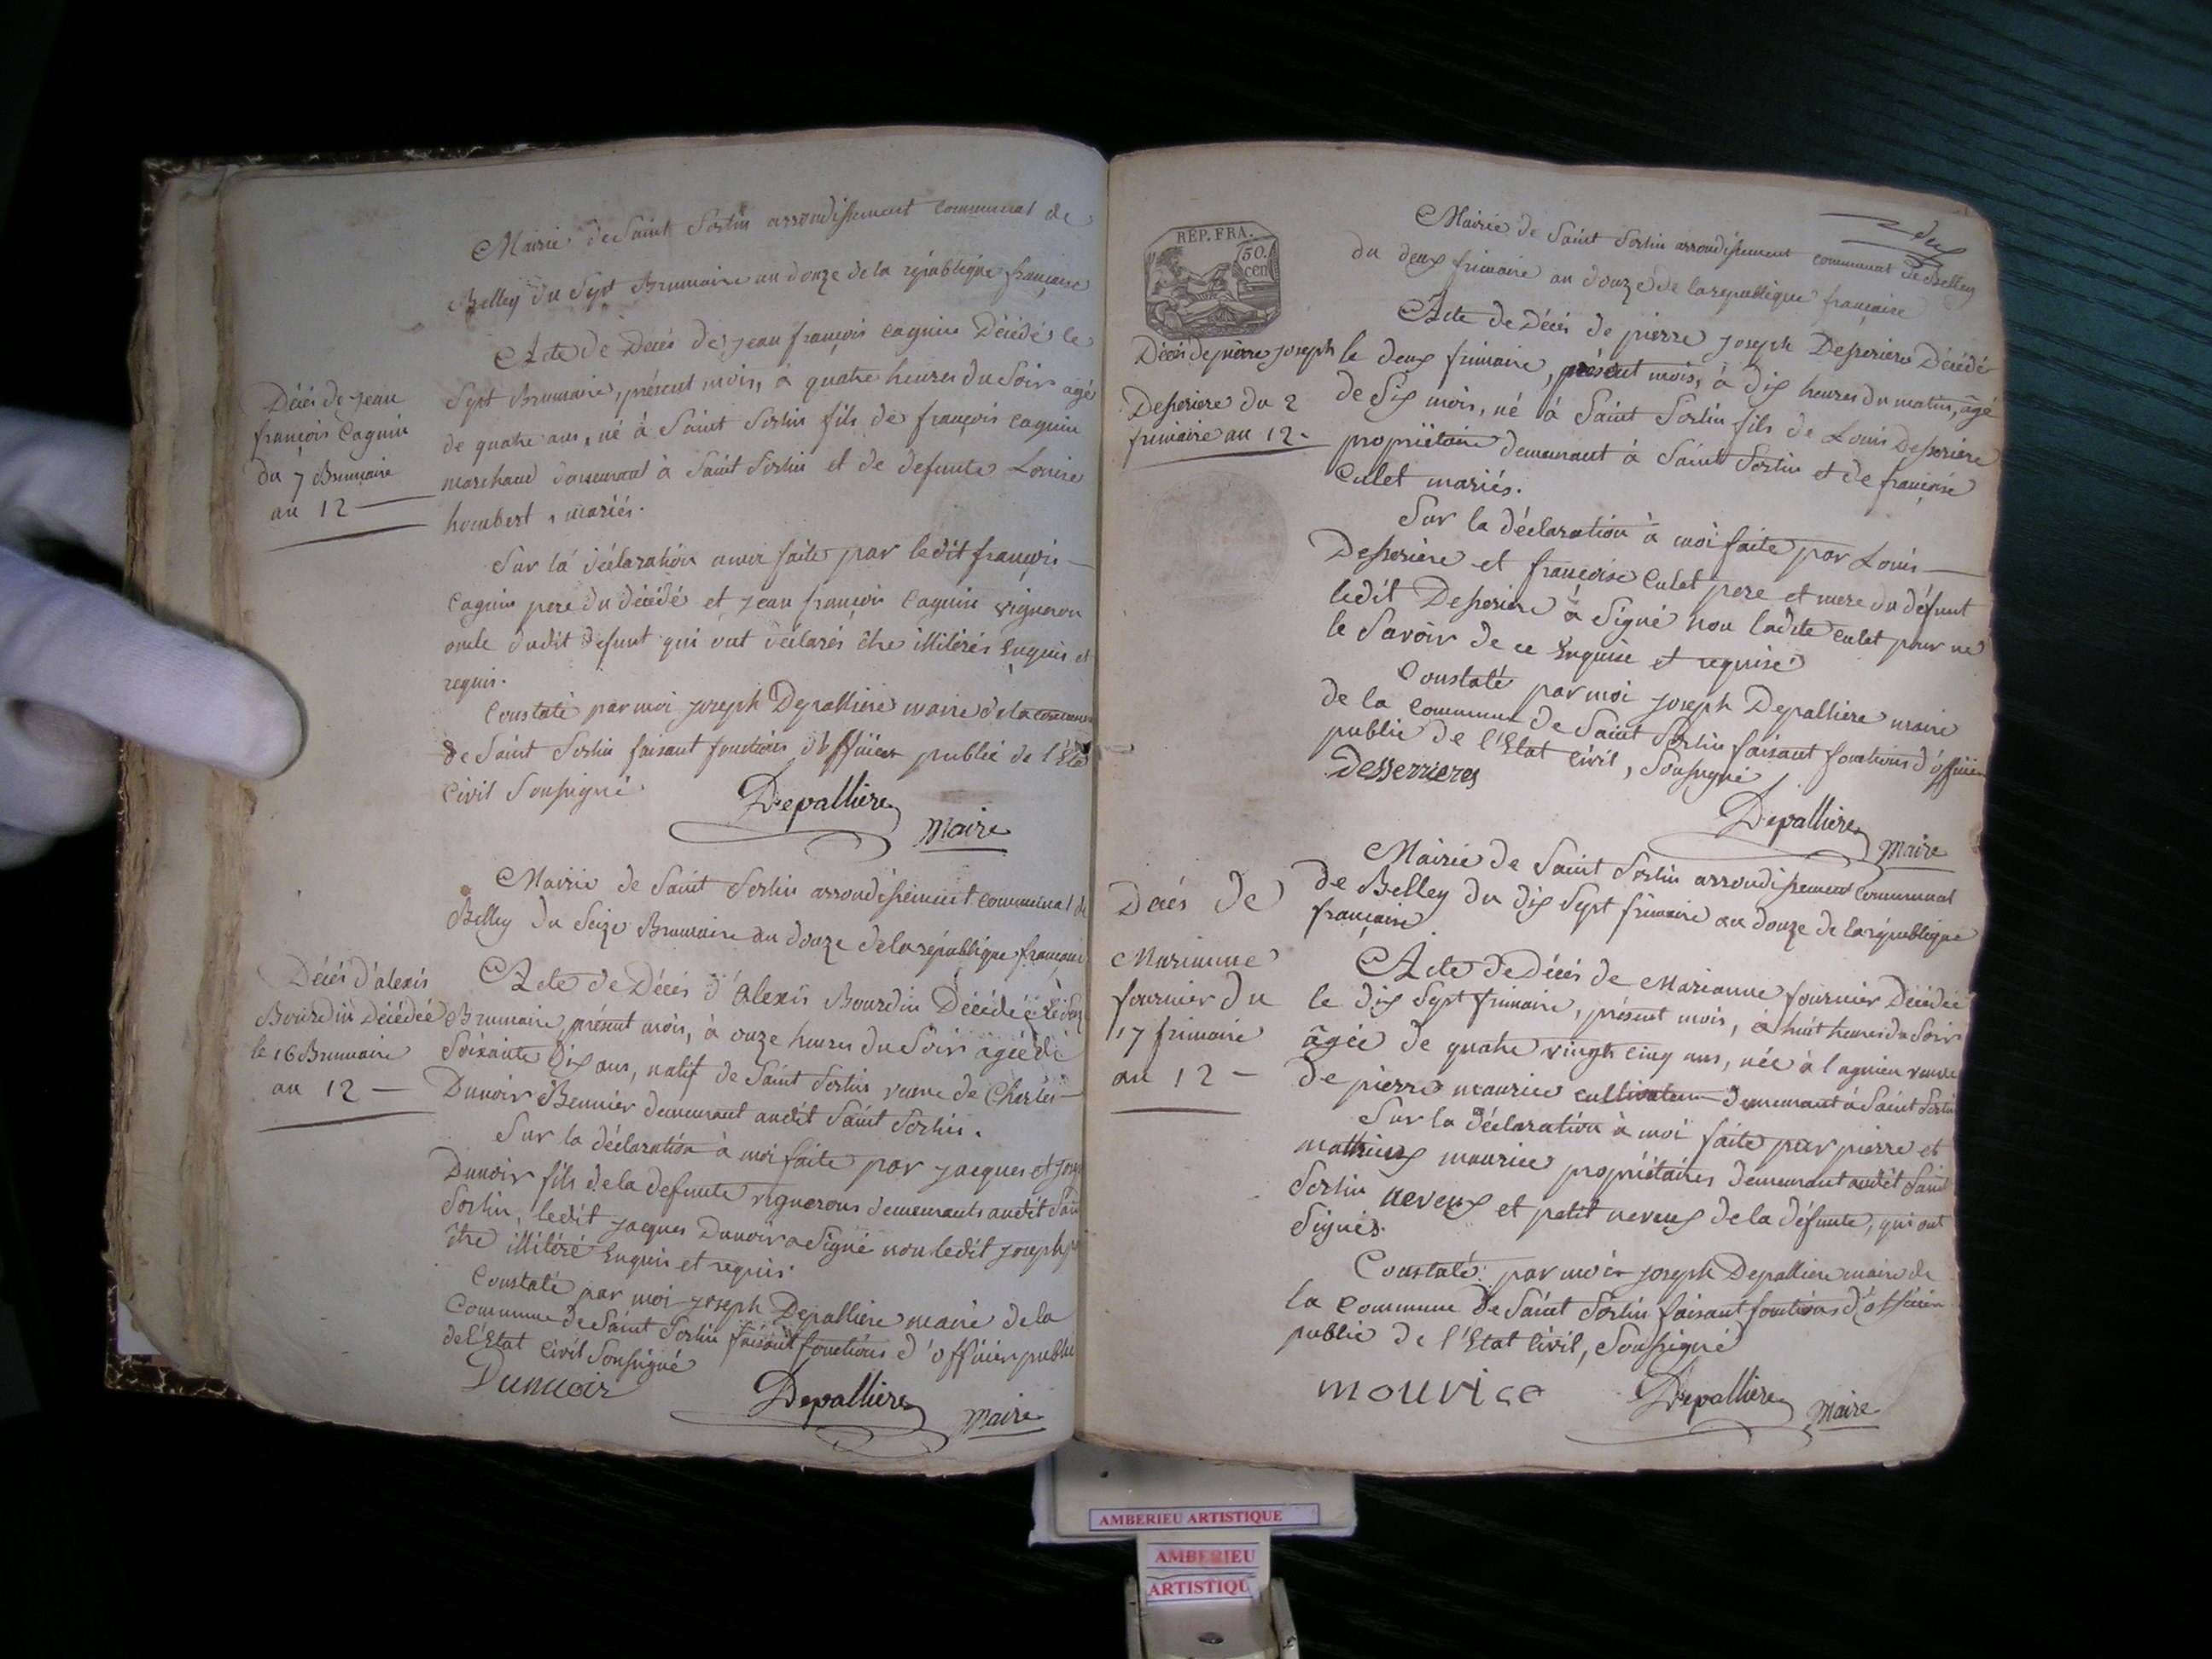 Mairie de Saint Sorlin arrondissement communal de
Belley du Sept Brumaire an douze de la république française
Décés de jean
françois Cagnin
du 7 Brumaire
an 12
Acte de Décés de jean françois Cagnin Décédé le
Sept Brumaire, présent mois, à quatre heures du Soir agé
de quatre ans, né à Saint Sorlin fils de françois Cagnin
marchand demeurant à Saint Sorlin et de defunte Louise
humbert, mariés.
Sur la déclaration a moi faite par ledit françois
Cagnin pere du décédé et jean françois Cagnin vigneron
oncle dudit defunt qui ont déclarés être illitérés Enquis et
requis.
Constaté par moi joseph Depallière maire de la commune
de Saint Sorlin faisant fonctions d'officier public de l'État
Civil Soussigné
Depalliere
Maire
Mairie de Saint Sorlin arrondissement communal de
Belley du Seize Brumaire an douze de la république française
Décés d'alexis
Bourdin Décédée
le 16 Brumaire
an 12
Acte de Décés d'Alexis Bourdin Décédée le Seize
Brumaire, présent mois, à onze heures du Soir agée de
Soixante Dix ans, natif de Saint Sorlin veuve de Charles
Dunoir demeurant audit Saint Sorlin.
Sur la déclaration à moi faite par jacques et joseph
Dunoir fils de la defunte vignerons demeurants audit Saint
Sorlin, ledit jacques Dunoir a Signé non ledit joseph pr
être illitéré Enquis et requis.
Constaté par moi joseph Depalliere maire de la
Commune de Saint Sorlin faisant fonctions d'officier public
de l'Etat Civil Soussigné
Dunuoir
Depalliere
Maire
REP. FRA.
50.
cen
Mairie de Saint Sorlin arrondissement communal de Belley
du deux frimaire an douze de la république française
Décés de pierre joseph
Desseriere du 2
frimaire an 12
Acte de Décés de pierre joseph Desseriere Décédé
le deux frimaire, présent mois, à dix heures du matin, âgé
de Six mois, né à Saint Sorlin fils de Louis Desseriere
propriétaire demeurant à Saint Sorlin et de françoise
Culet mariés.
Sur la déclaration à moi faite par Louis
Desseriere et françoise Culet pere et mere du défunt
ledit Desseriere a Signé non ladite culet pour ne
le Savoir de ce Enquise et requise
Constaté par moi joseph Depalliere maire
de la commune de Saint Sorlin faisant fonctions d'officier
public de l'Etat Civil, Soussigné
desserrieres
Depalliere
Maire
Mairie de Saint Sorlin arrondissement communal
de Belley du dix Sept frimaire an douze de la république
française
Décés de
Marianne
fournier du
17 frimaire
an 12
Acte de Décés de Marianne fournier Décédée
le dix Sept frimaire, présent mois, à huit heures du Soir
âgée de quatre vingts cinq ans, née à lagnieu veuve
de pierre maurice cultivateur demeurant à Saint Sorlin
Sur la déclaration à moi faite par pierre et
mathieux maurice propriétaires demeurant audit Saint
Sorlin neveux et petit neveux de la défunte, qui ont
Signés.
Constaté par moi joseph Depalliere maire de
la Commune de Saint Sorlin faisant fonctions d'officier
public de l'Etat Civil, Soussigné
mourice
Depalliere
Maire
AMBERIEU ARTISTIQUE
AMBERIEU
ARTISTIQU